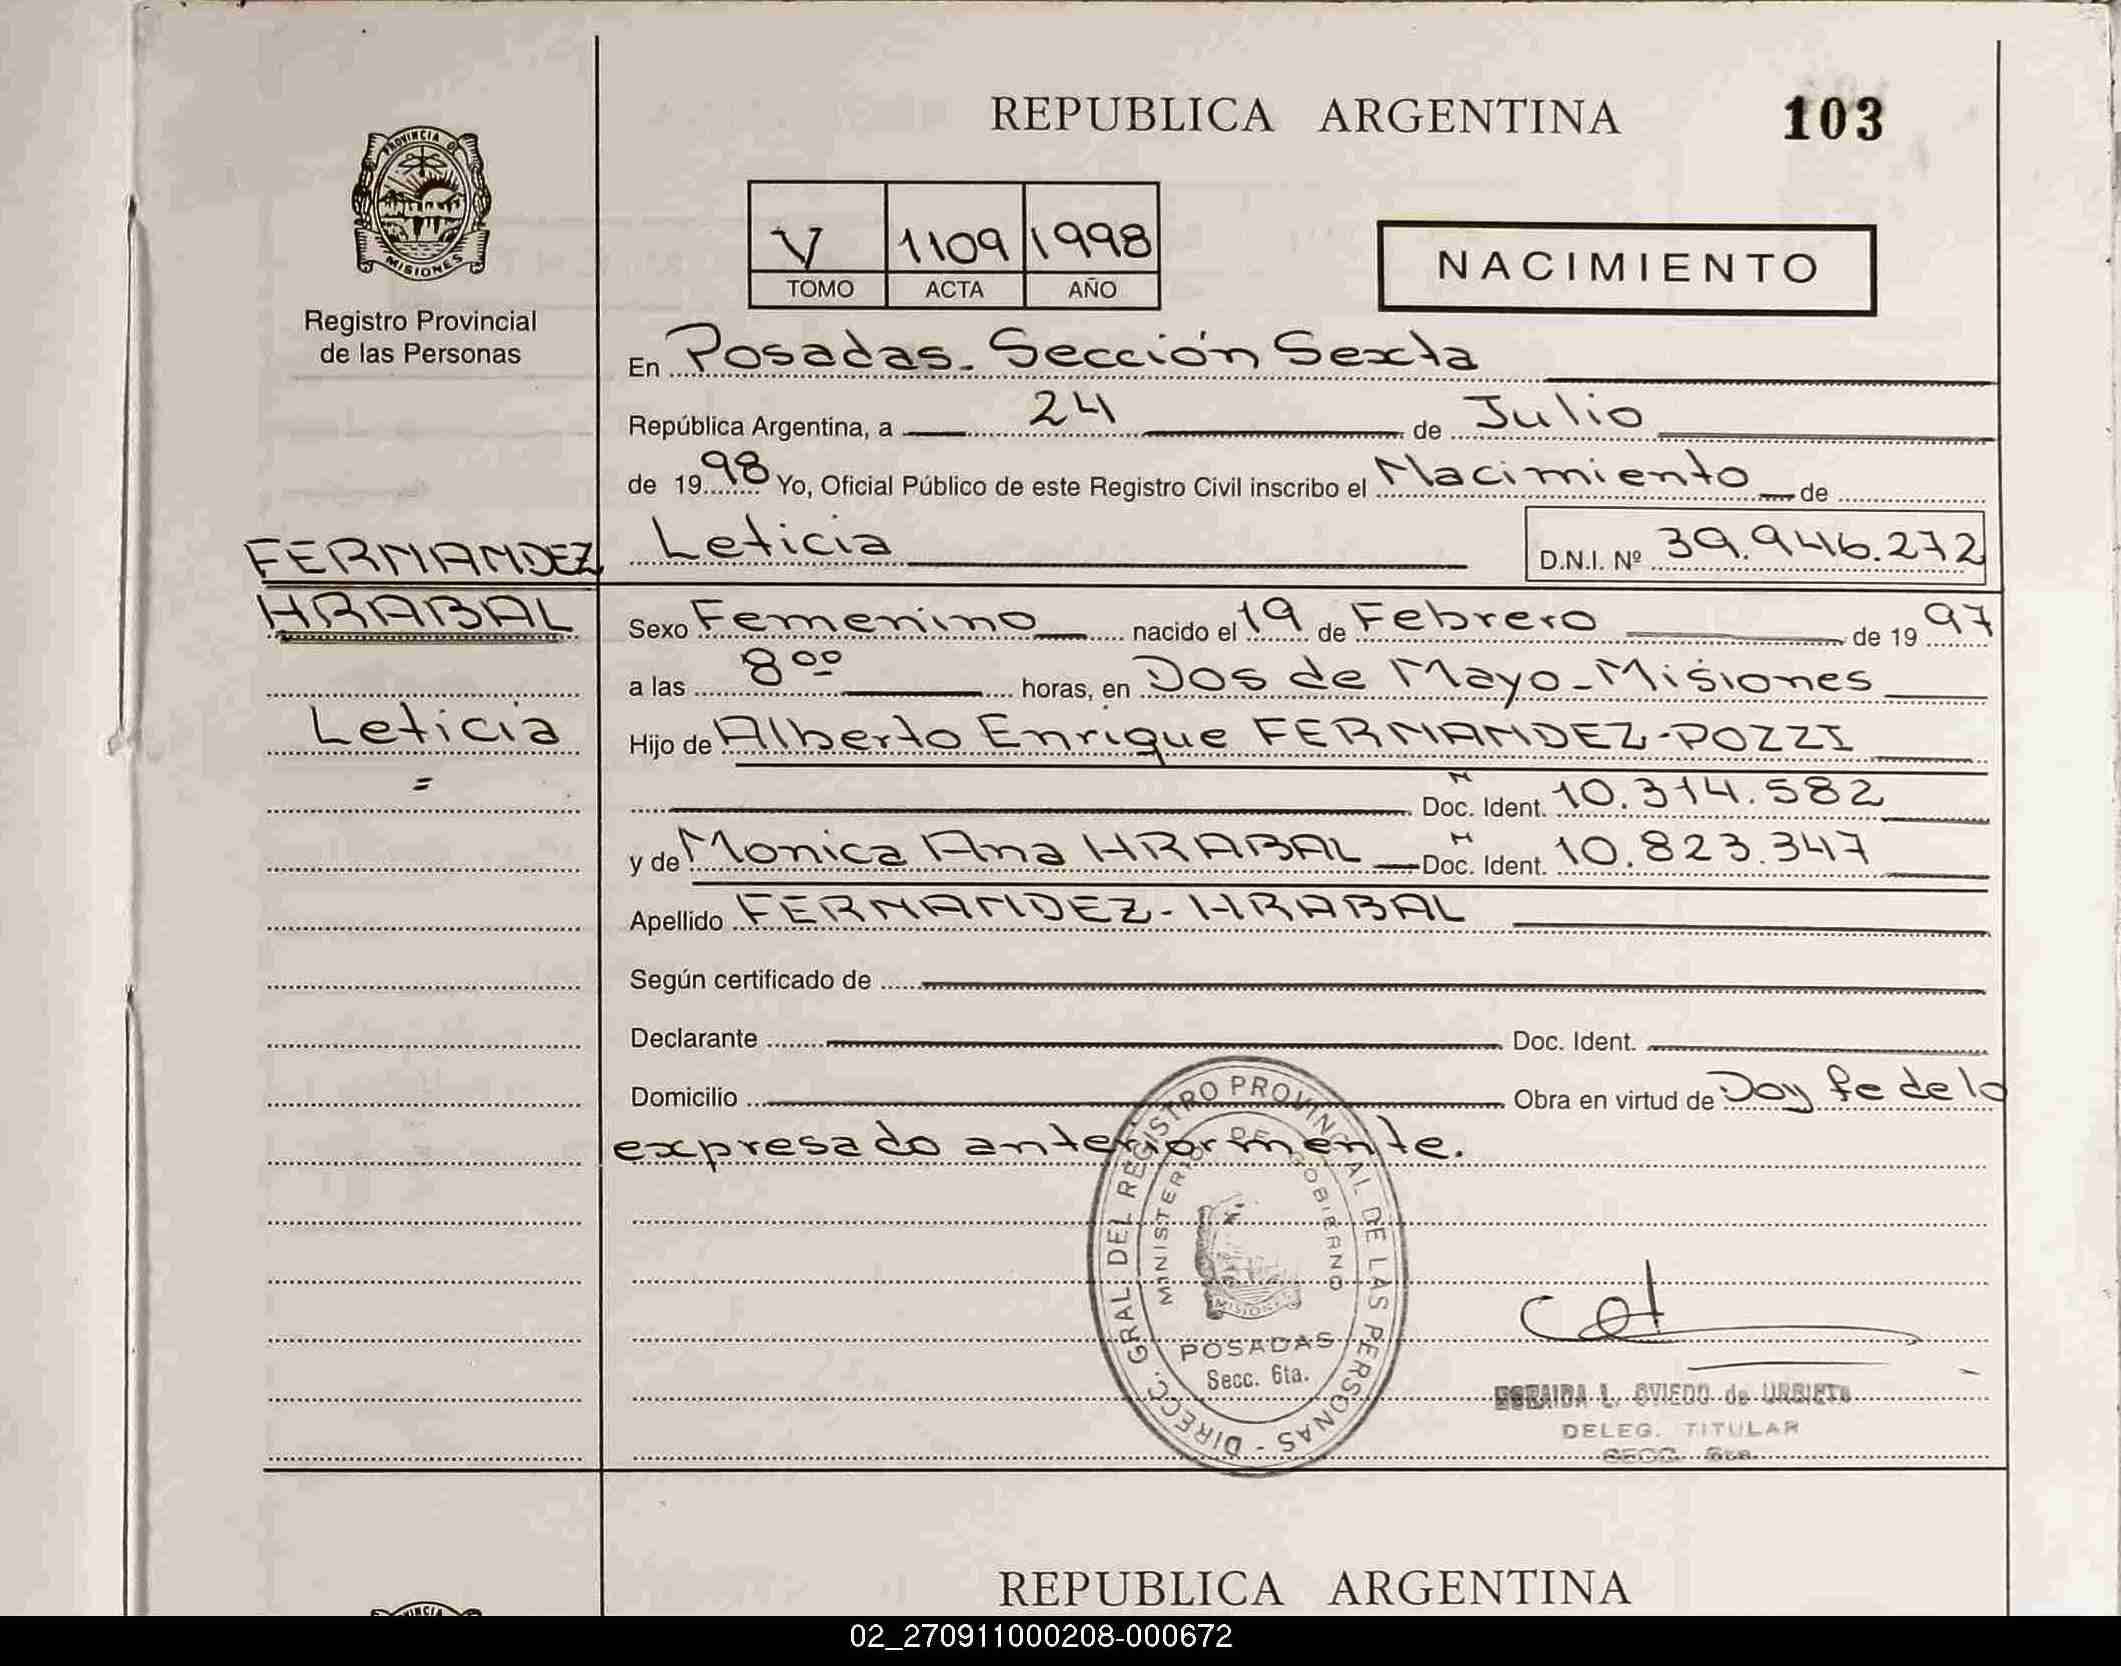 REPUBLICA ARGENTINA
103
PROVINCIA DE
MISIONES
Registro Provincial
de las Personas
V 1109 1998
TOMO ACTA AÑO
NACIMIENTO
En Posadas - Sección Sexta
República Argentina, a 24 de Julio
de 1998 Yo, Oficial Público de este Registro Civil inscribo el Nacimiento de
Leticia D.N.I. Nº 39.946.272
FERNANDEZ
HRABAL
Leticia
=
Sexo Femenino nacido el 19 de Febrero de 1997
a las 8 00 horas, en Dos de Mayo - Misiones
Hijo de Alberto Enrique FERNANDEZ-POZZI
Doc. Ident. N 10.314.582
y de Monica Ana HRABAL Doc. Ident. N 10.823.347
Apellido FERNANDEZ - HRABAL
Según certificado de
Declarante Doc. Ident.
Domicilio Obra en virtud de Doy fe de lo
expresado anteriormente.
DIRECC. GRAL DEL REGISTRO PROVINCIAL DE LAS PERSONAS -
MINISTERIO DE GOBIERNO
MISIONES
POSADAS
Secc. 6ta.
L. OVIEDO de URBIETA
DELEG. TITULAR
SECC. 6ta.
REPUBLICA ARGENTINA
02_270911000208-000672